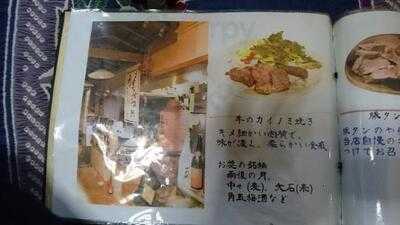 牛のカイノミ焼き
キメ細かい肉質で、
味が濃く、柔らかい食感
お奨の銘柄
雨後の月、
中々(麦)、大石(米)
角玉梅酒など
豚タン
豚タンのや
当店自慢の
つけてお召